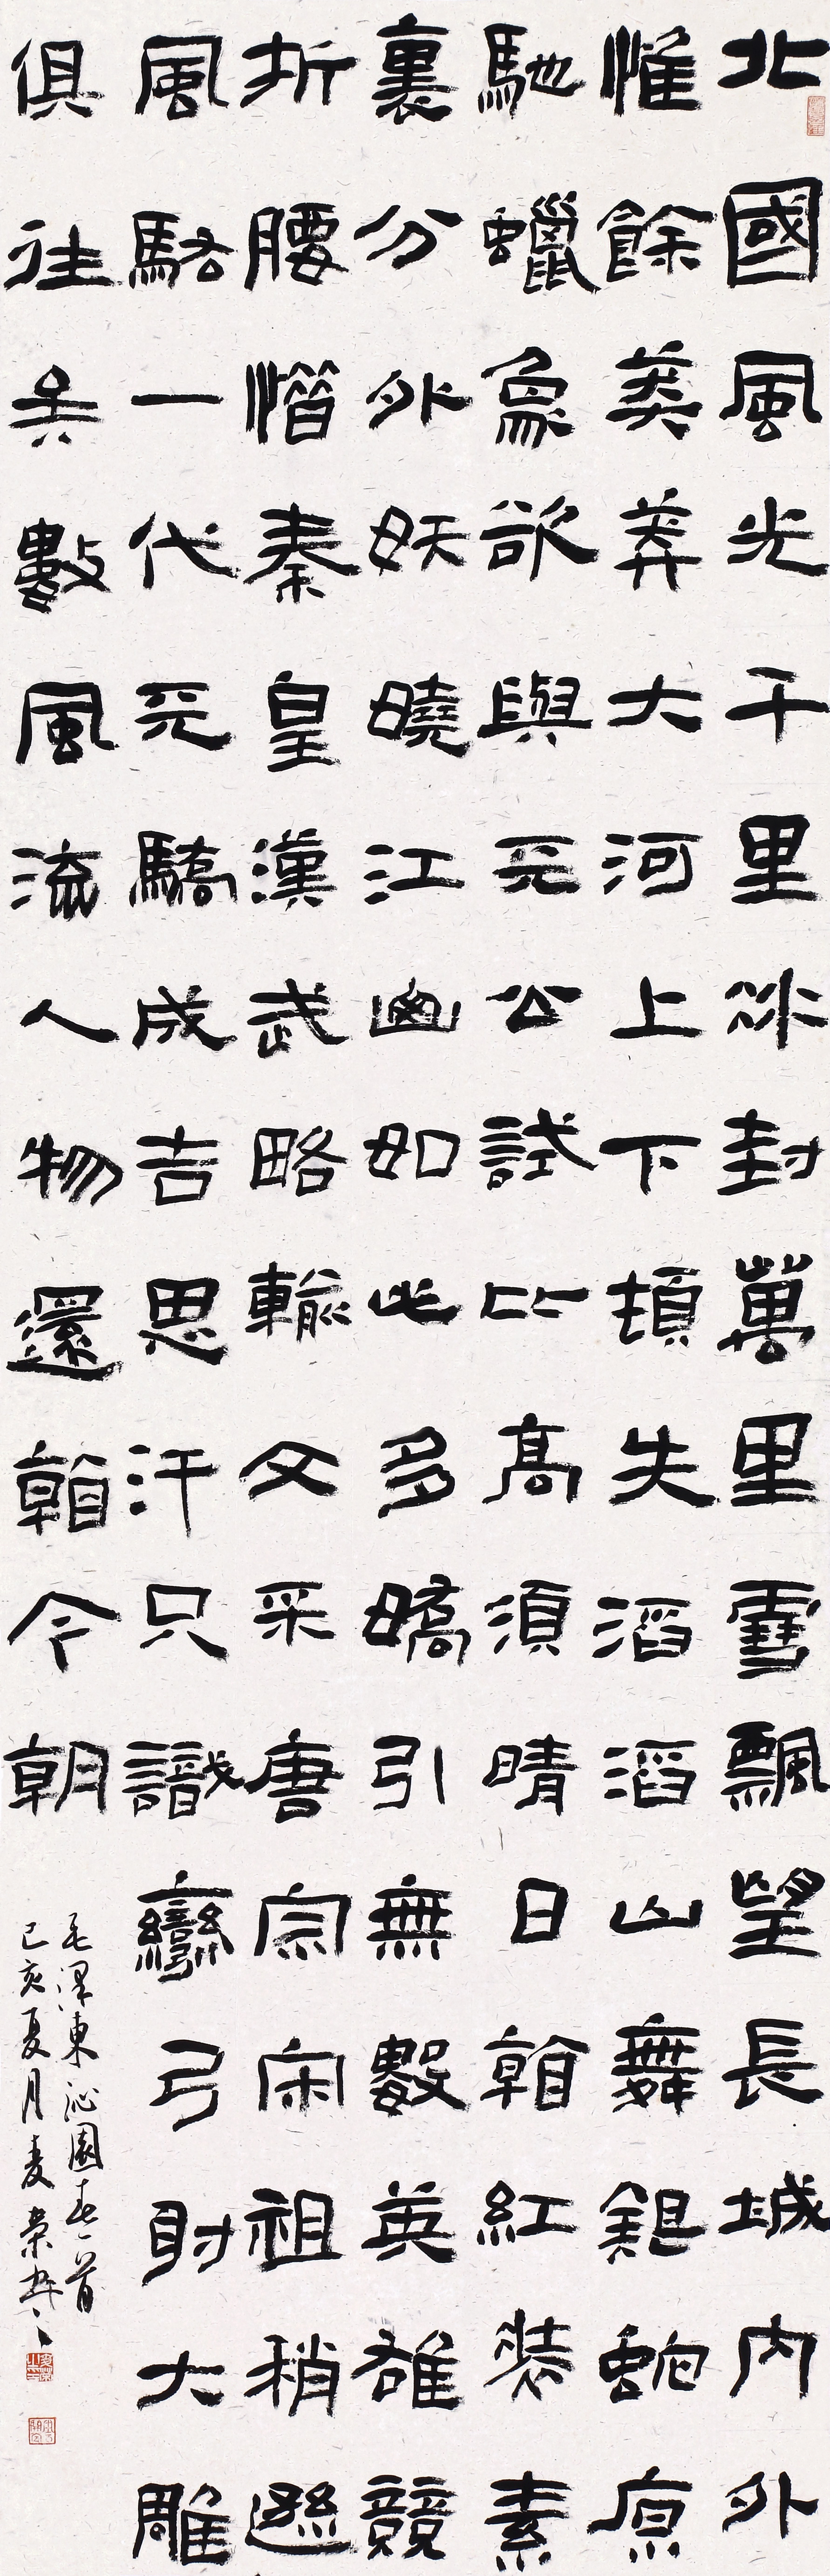 北國風光千里冰封萬里雪飄望長城內外
惟餘莽莽大河上下頓失滔滔山舞銀蛇原
馳蠟象欲與天公試比高須晴日看紅裝素
裹分外妖嬈江山如此多嬌引無數英雄競
折腰惜秦皇漢武略輸文采唐宗宋祖稍遜
風騷一代天驕成吉思汗只識彎弓射大雕
俱往矣數風流人物還看今朝
毛澤東沁園春一首
己亥夏月麦榮